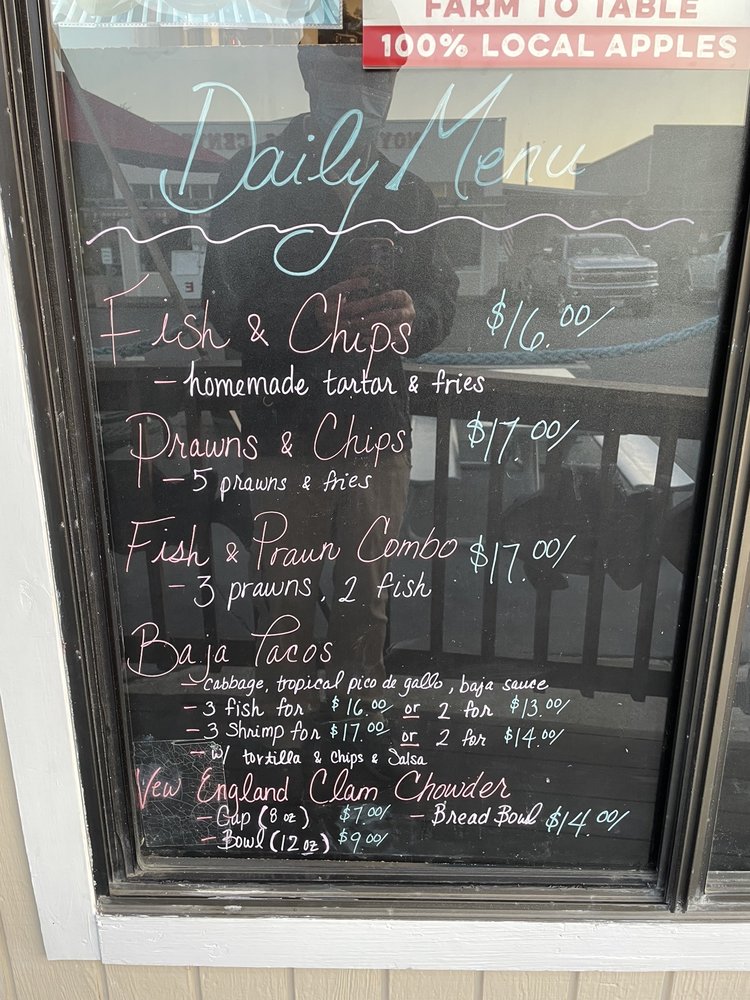 FARM TO TABLE
100% LOCAL APPLES
Daily Menu
Fish & Chips $16.00/
- homemade tartar & fries
Prawns & Chips $17.00/
- 5 prawns & fries
Fish & Praun Combo $17.00/
- 3 prawns, 2 fish
Baja Tacos
- cabbage, tropical pico de gallo, baja sauce
- 3 fish for $16.00 or 2 for $13.00/
- 3 Shrimp for $17.00 or 2 for $14.00/
- w/ tortilla & chips & Salsa
New England Clam Chowder
- Cup (8 oz) $7.00/ - Bread Bowl $14.00/
- Bowl (12 oz) $9.00/